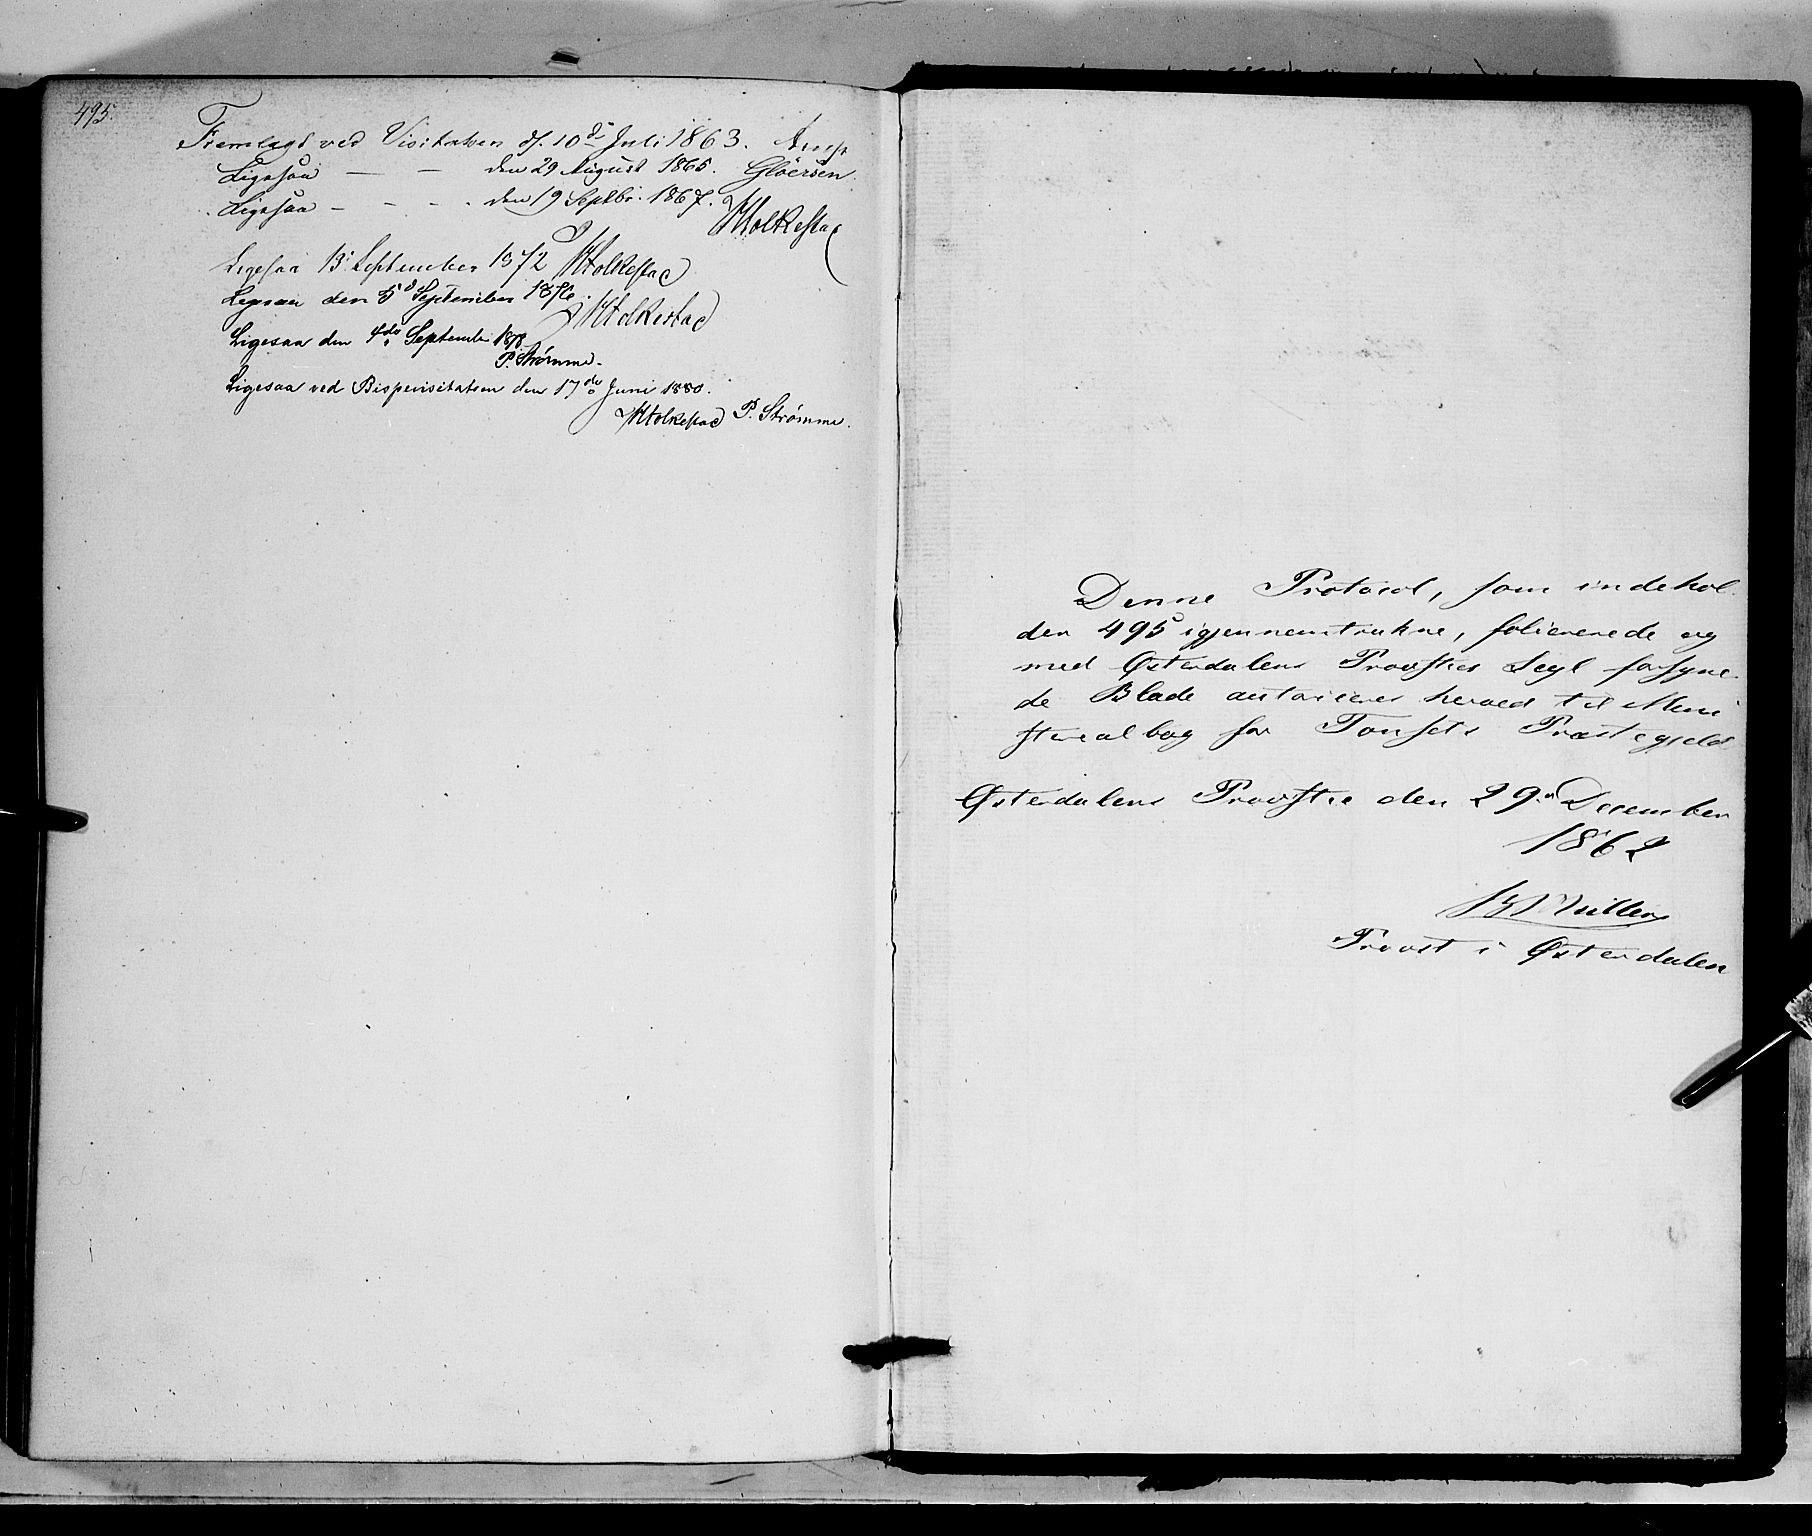 495.
Fremlagt ved Visitatsen d. 10de Juli 1863. Arup
Ligesaa — — den 29 August 1865. Gløersen.
Ligesaa - - - - den 19 Septbr. 1867. Holkestad
Ligesaa 13 September 1872 Holkestad
Ligesaa den 5te September 1876. Holkestad
Ligesaa den 4de September 1878.
P. Strømme.
Ligesaa ved Bispevisitatsen den 17de Juni 1880.
Holkestad P. Strømme.
Denne Protocol, som indehol-
der 495 igjennemtrukne, folierede og
med Østerdalens Provsties Segl forsyne-
de Blade autoriseres herved til Mini-
sterialbog for Tonsets Præstegjeld
Østerdalens Provstie den 29de December
1862
Müller
Provst i Østerdalen